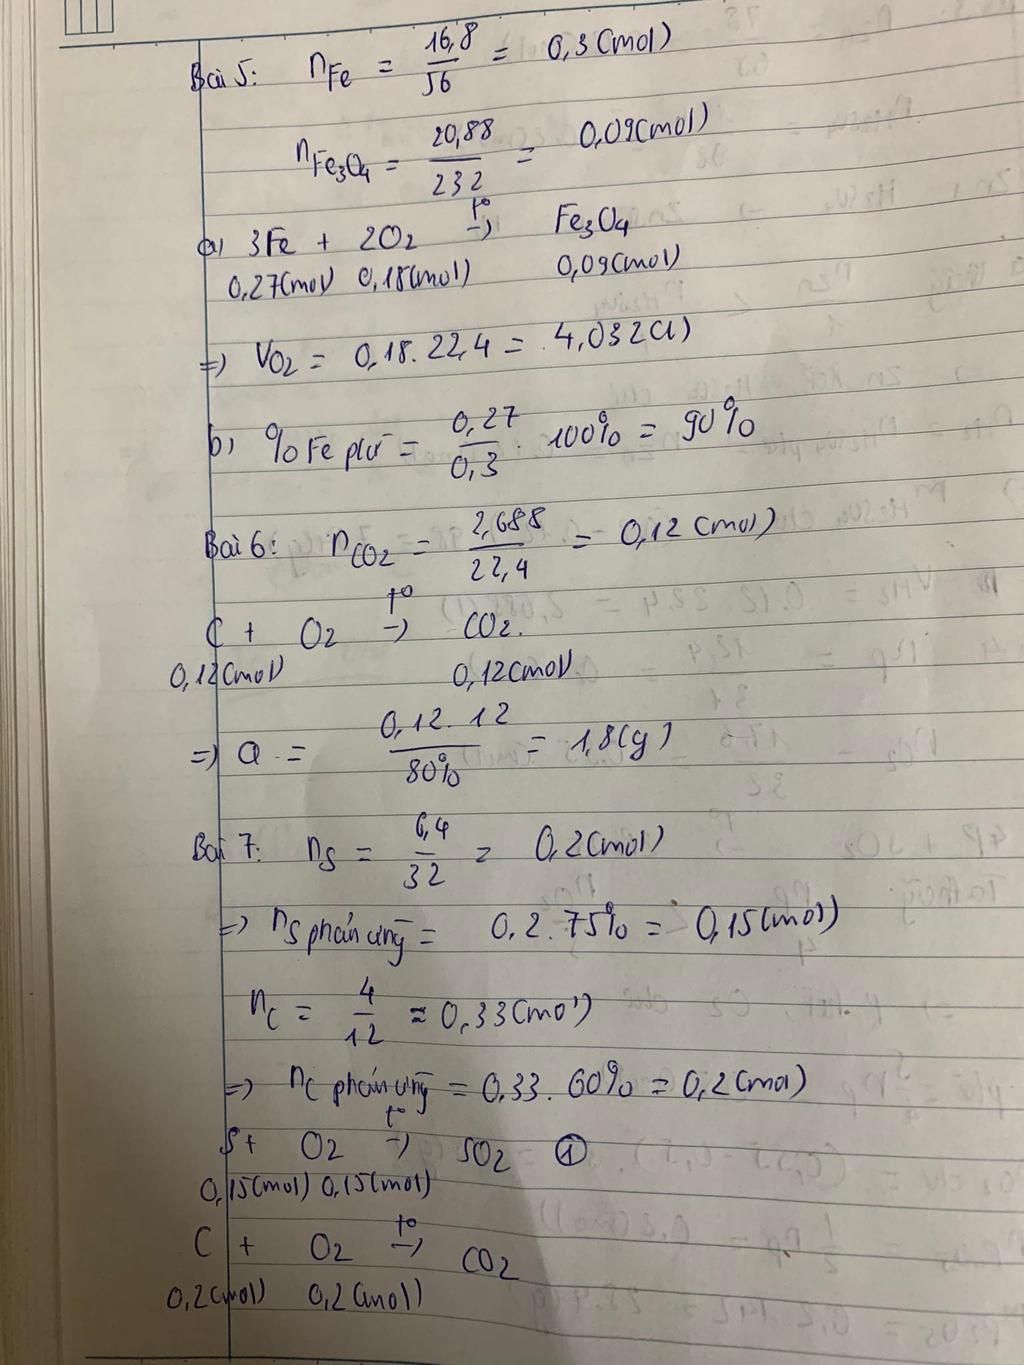 Bài 5: nFe = 16,8/56 = 0,3(mol)
nFe3O4 = 20,88/232 = 0,09(mol)
a) 3Fe + 2O2 t°→ Fe3O4
0,27(mol) 0,18(mol) 0,09(mol)
=> VO2 = 0,18.22,4 = 4,032(l)
b) %Fe pứ = 0,27/0,3 . 100% = 90%
Bài 6: nCO2 = 2,688/22,4 = 0,12(mol)
C + O2 t°→ CO2.
0,12(mol) 0,12(mol)
=> a = 0,12.12/80% = 1,8(g)
Bài 7: nS = 6,4/32 = 0,2(mol)
=> nS phản ứng = 0,2.75% = 0,15(mol)
nC = 4/12 ≈ 0,33(mol)
=> nC phản ứng = 0,33.60% = 0,2(mol)
S + O2 t°→ SO2 ①
0,15(mol) 0,15(mol)
C + O2 t°→ CO2
0,2(mol) 0,2(mol)